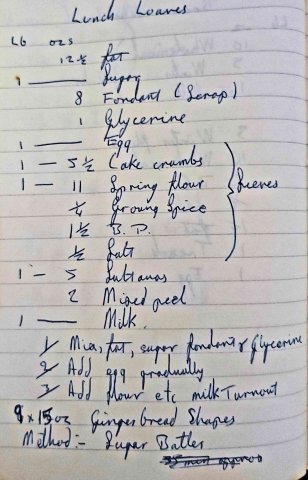 Lunch Loaves
Lb ozs
12 ½ fat
1 — Sugar
8 Fondant (Scrap)
1 Glycerine
1 — Egg
1 — 5 ½ Cake crumbs
1 — 11 Spring flour } Sieves
¼ Groung Spice
1 ½ B. P.
½ Salt
1 — 5 Sultanas
2 Mixed peel
1 — Milk.
1/ Mix, fat, sugar fondant & Glycerine
2/ Add egg gradually
3/ Add flour etc milk Turnout
8 x 15 oz Gingerbread Shapes
Method:- Sugar Batter